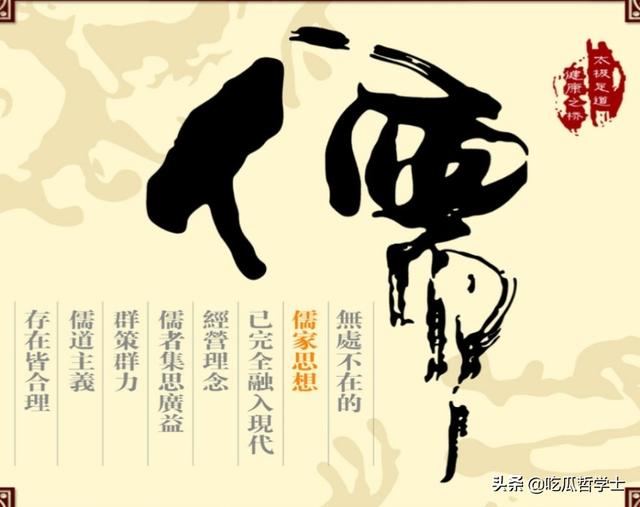 儒
太极足道
健康之桥
無處不在的
儒家思想
已完全融入現代
經營理念
儒者集思廣益
群策群力
儒道主義
存在皆合理
头条 @吃瓜哲学士